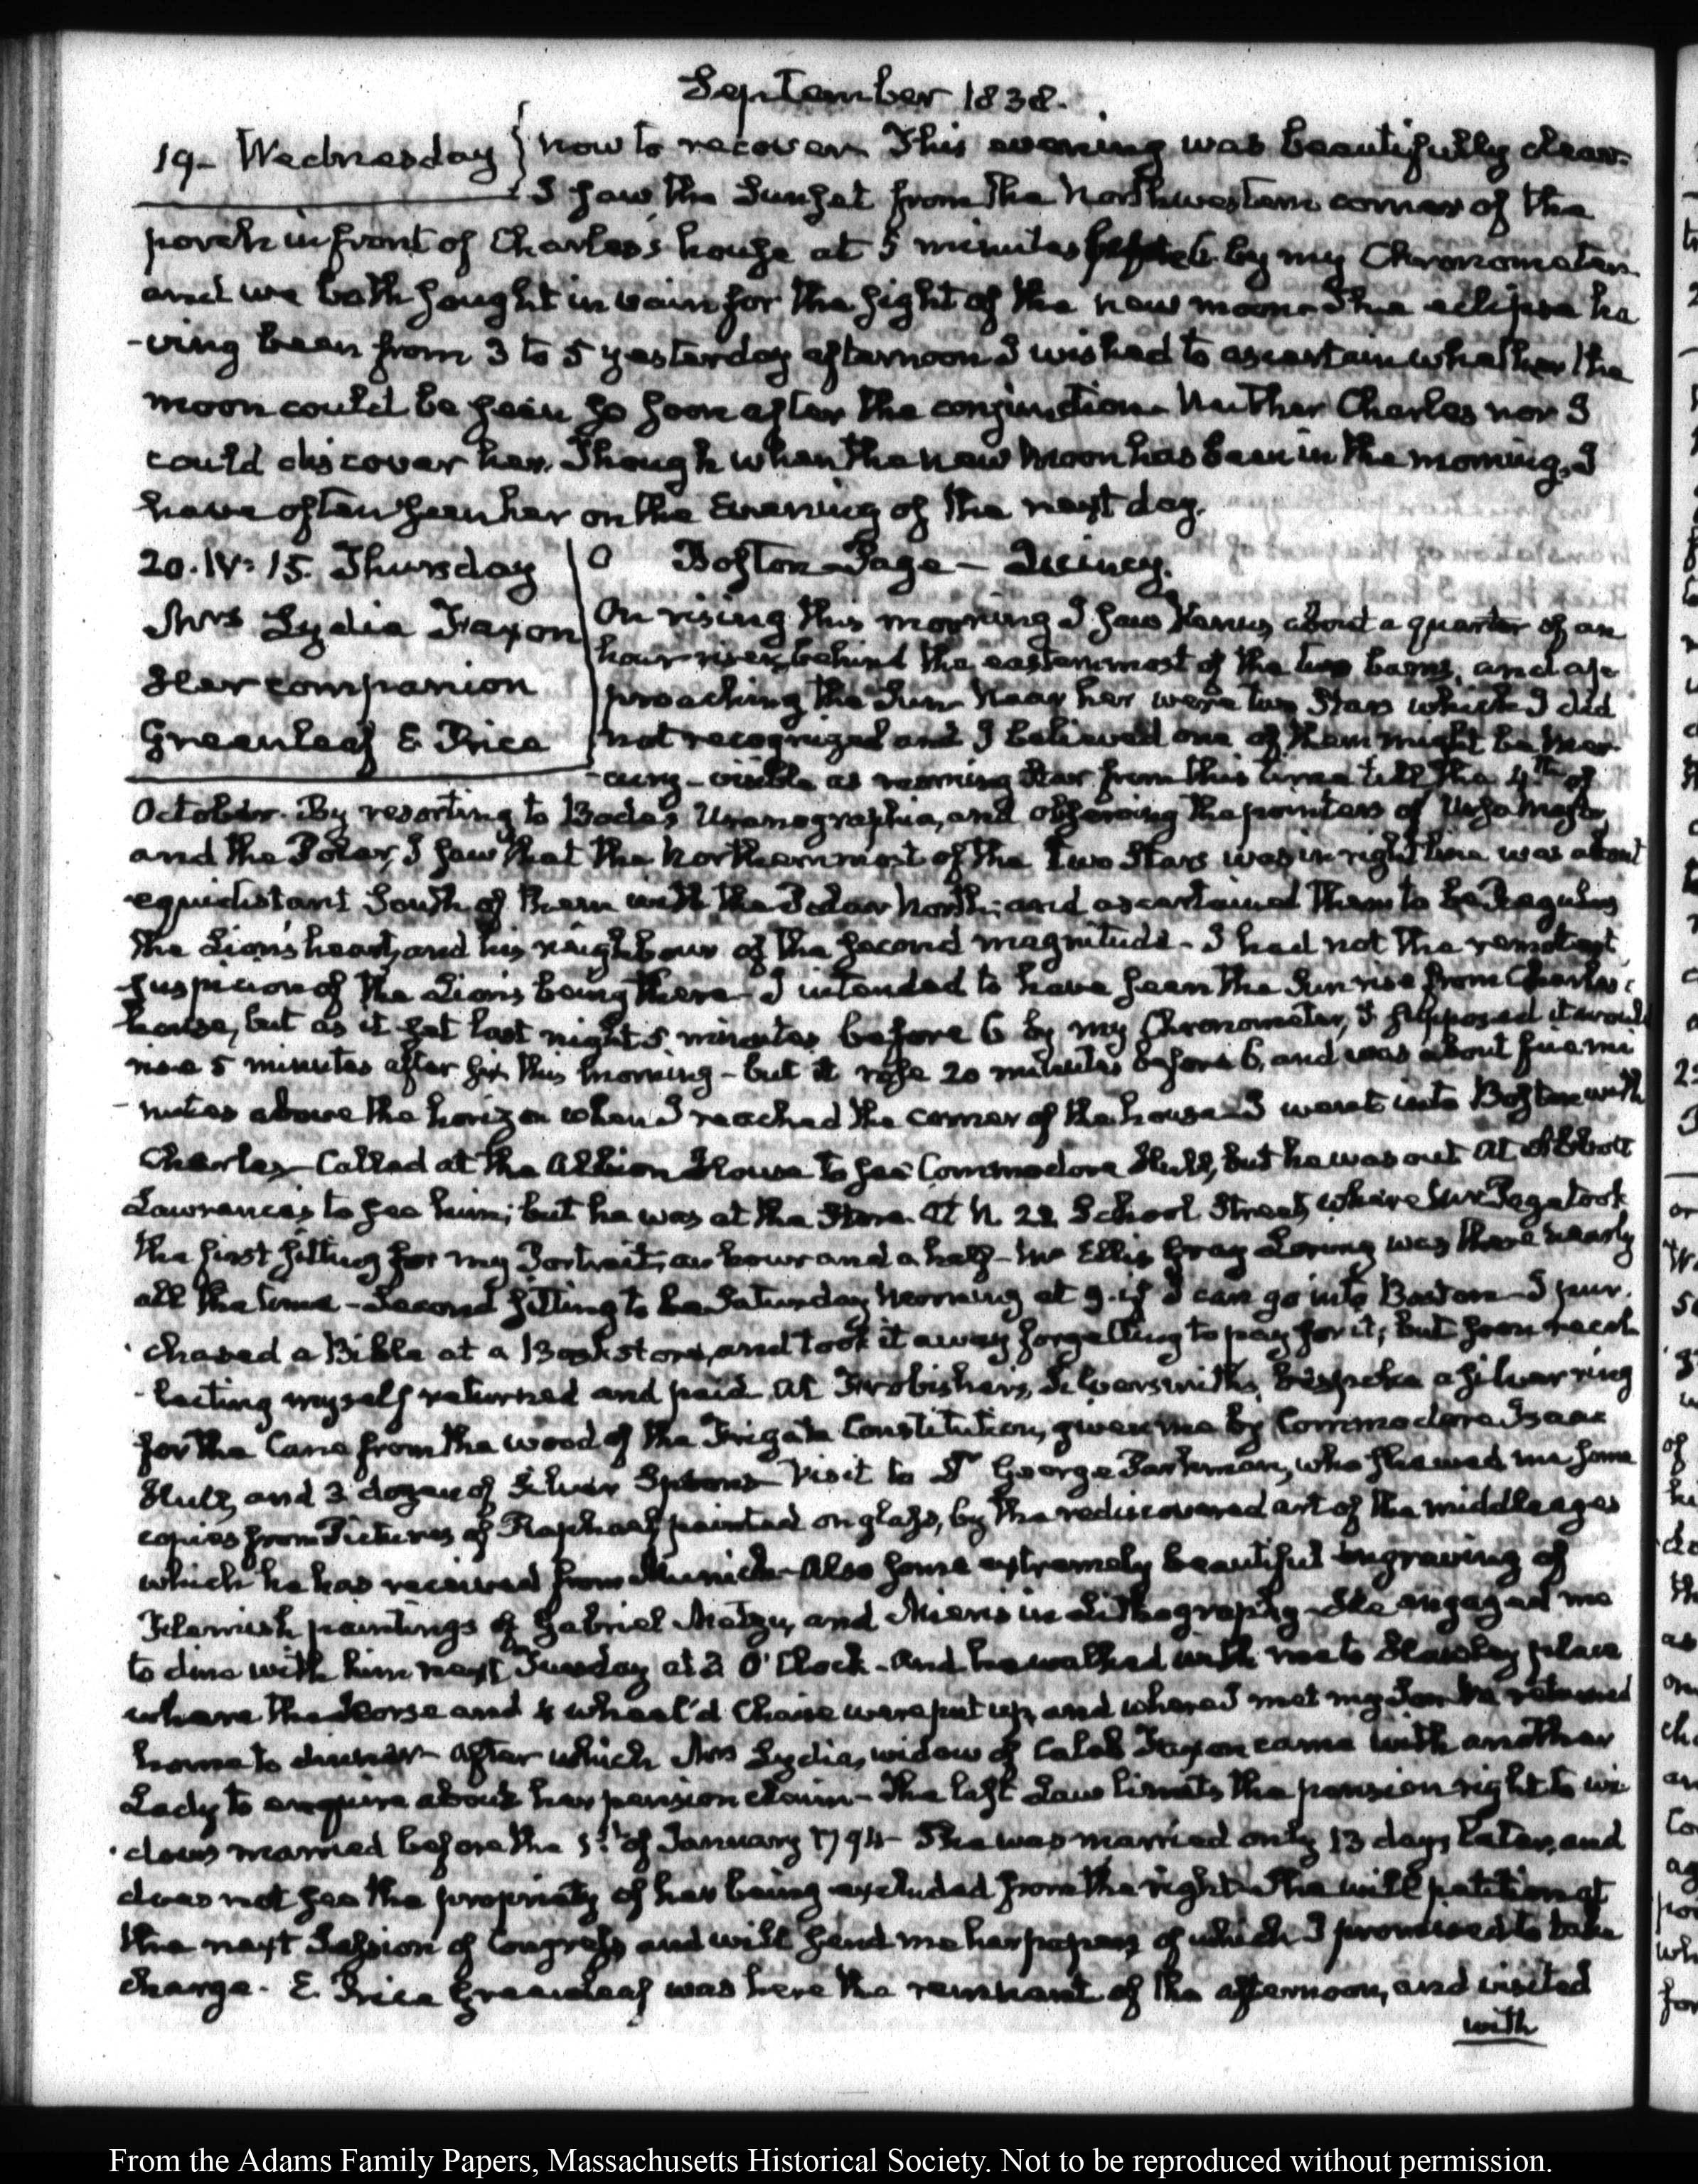 September 1838.
19- Wednesday
now to recover. This evening was beautifully clear.
I saw the Sunset from the Northwestern corner of the
porch in front of Charles's house at 5 minutes before 6 by my Chronometer
and we both sought in vain for the sight of the new moon. The eclipse ha
-ving been from 3 to 5 yesterday afternoon I wished to ascertain whether the
moon could be seen so soon after the conjunction. Neither Charles nor I
could discover her. Though when the new Moon has been in the morning, I
have often seen her on the Evening of the next day.
20. IV: 15. Thursday
Mrs Lydia Faxon
Her companion
Greenleaf E Price
Boston Page - Quincy.
On rising this morning I saw Venus, about a quarter of an
hour risen, behind the easternmost of the two barns, and ap
proaching the Sun. Near her were two Stars which I did
not recognized and I believed one of them might be Mer
-cury - visible as morning Star from this time till the 4th of
October. By resorting to Bode's Uranographia, and observing the pointers of Ursa Major,
and the Polar, I saw that the Northernmost of the two Stars was in right line was about
equidistant South of them with the Polar North; and ascertained them to be Regulus
the Lion's heart, and his neighbour of the second magnitude - I had not the remotest
suspicion of the Lion's being there - I intended to have seen the Sun rise from Charles's
house, but as it set last night 5 minutes before 6 by my Chronometer, I supposed it would
rise 5 minutes after six this morning - but it rose 20 minutes before 6, and was about five mi
-nutes above the horizon when I reached the corner of the house - I went into Boston with
Charles - Called at the Albion House to see Commodore Hull, but he was out At Abbott
Lawrence's to see him; but he was at the Store. At N. 22 School Street, where Mr Page took
the first sitting for my Portrait, an hour and a half - Mr Ellis Gray Loring was there nearly
all the time - Second sitting to be Saturday Morning at 9. if I can go into Boston - I pur.
chased a Bible at a Bookstore, and took it away forgetting to pay for it; but soon recol
-lecting myself returned and paid. At Frobisher's, Silversmith's, bespoke a silver ring
for the Cane from the wood of the Frigate Constitution, given me by Commodore Isaac
Hull, and 2 dozen of Silver Spoons - Visit to Dr George Parkman, who shewed me some
copies from Pictures of Raphael painted on glass, by the rediscovered art of the middle ages
which he has received from Munich - Also some extremely beautiful engraving of
Flemish paintings of Gabriel Metzu, and Mieris in Lithography - He engaged me
to dine with him next Tuesday at 2 O'Clock - And he walked with me to Hawley place
where the Horse and 4 wheel'd Chaise were put up, and where I met my Son We returned
home to dinner - After which Mrs Lydia, widow of Caleb Faxon came with another
Lady to enquire about her pension claim - The last Law limits the pension right to wi
-dows married before the 1st of January 1794 - She was married only 13 days later, and
does not see the propriety of her being excluded from the right - She will petition at
the next Session of Congress and will send me her papers of which I promised to take
charge. E. Price Greenleaf was here the remnant of the afternoon, and visited
with
From the Adams Family Papers, Massachusetts Historical Society. Not to be reproduced without permission.